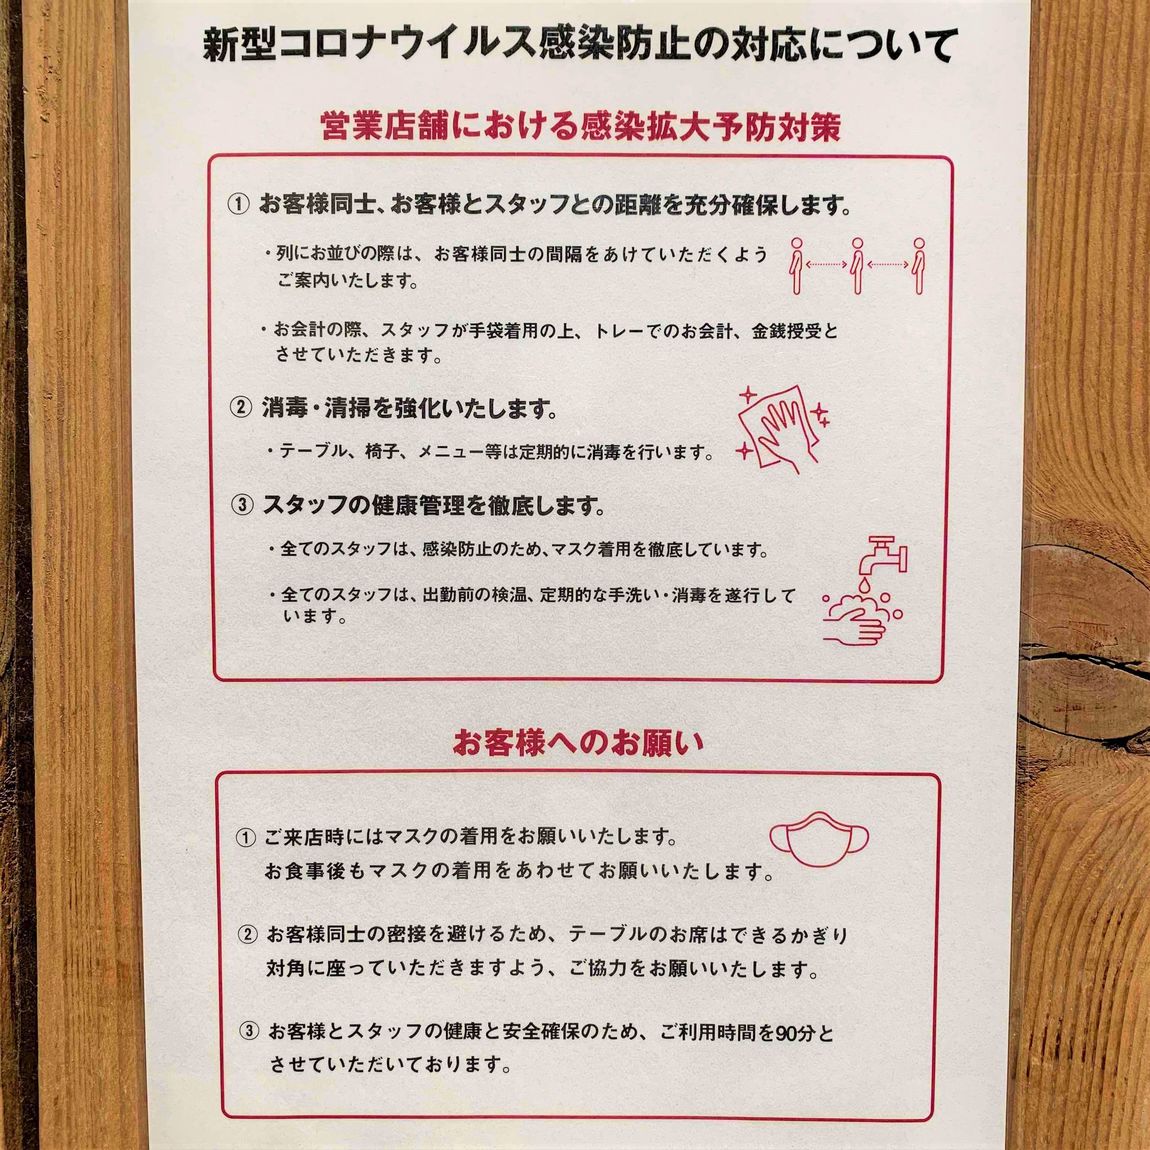 新型コロナウイルス感染防止の対応について
営業店舗における感染拡大予防対策
① お客様同士、お客様とスタッフとの距離を充分確保します。
・列にお並びの際は、お客様同士の間隔をあけていただくよう
ご案内いたします。
・お会計の際、スタッフが手袋着用の上、トレーでのお会計、金銭授受と
させていただきます。
② 消毒・清掃を強化いたします。
・テーブル、椅子、メニュー等は定期的に消毒を行います。
③ スタッフの健康管理を徹底します。
・全てのスタッフは、感染防止のため、マスク着用を徹底しています。
・全てのスタッフは、出勤前の検温、定期的な手洗い・消毒を遂行して
います。
お客様へのお願い
① ご来店時にはマスクの着用をお願いいたします。
お食事後もマスクの着用をあわせてお願いいたします。
② お客様同士の密接を避けるため、テーブルのお席はできるかぎり
対角に座っていただきますよう、ご協力をお願いいたします。
③ お客様とスタッフの健康と安全確保のため、ご利用時間を90分と
させていただいております。